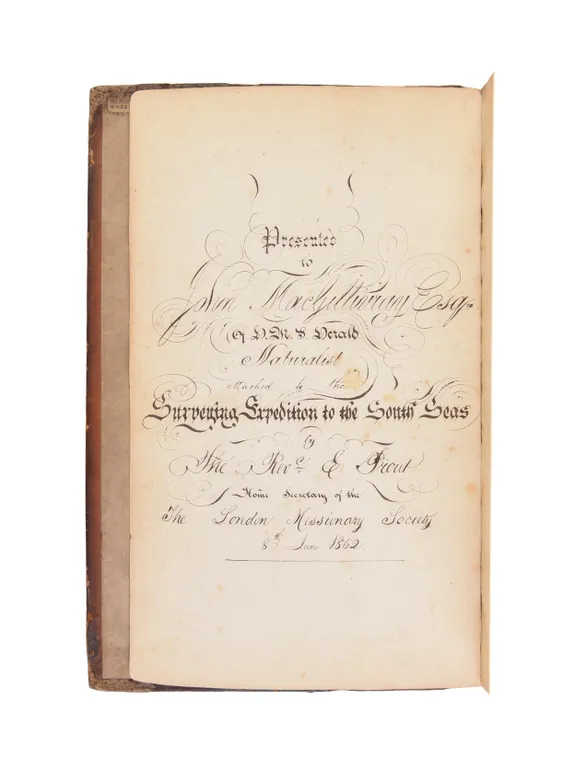 Presented
to
John MacGillivray Esqr.
of H.M.S. Herald
Naturalist
attached to the
Surveying Expedition to the South Seas
by
The Revd. E. Prout
Home Secretary of the
The London Missionary Society
8th June 1852.